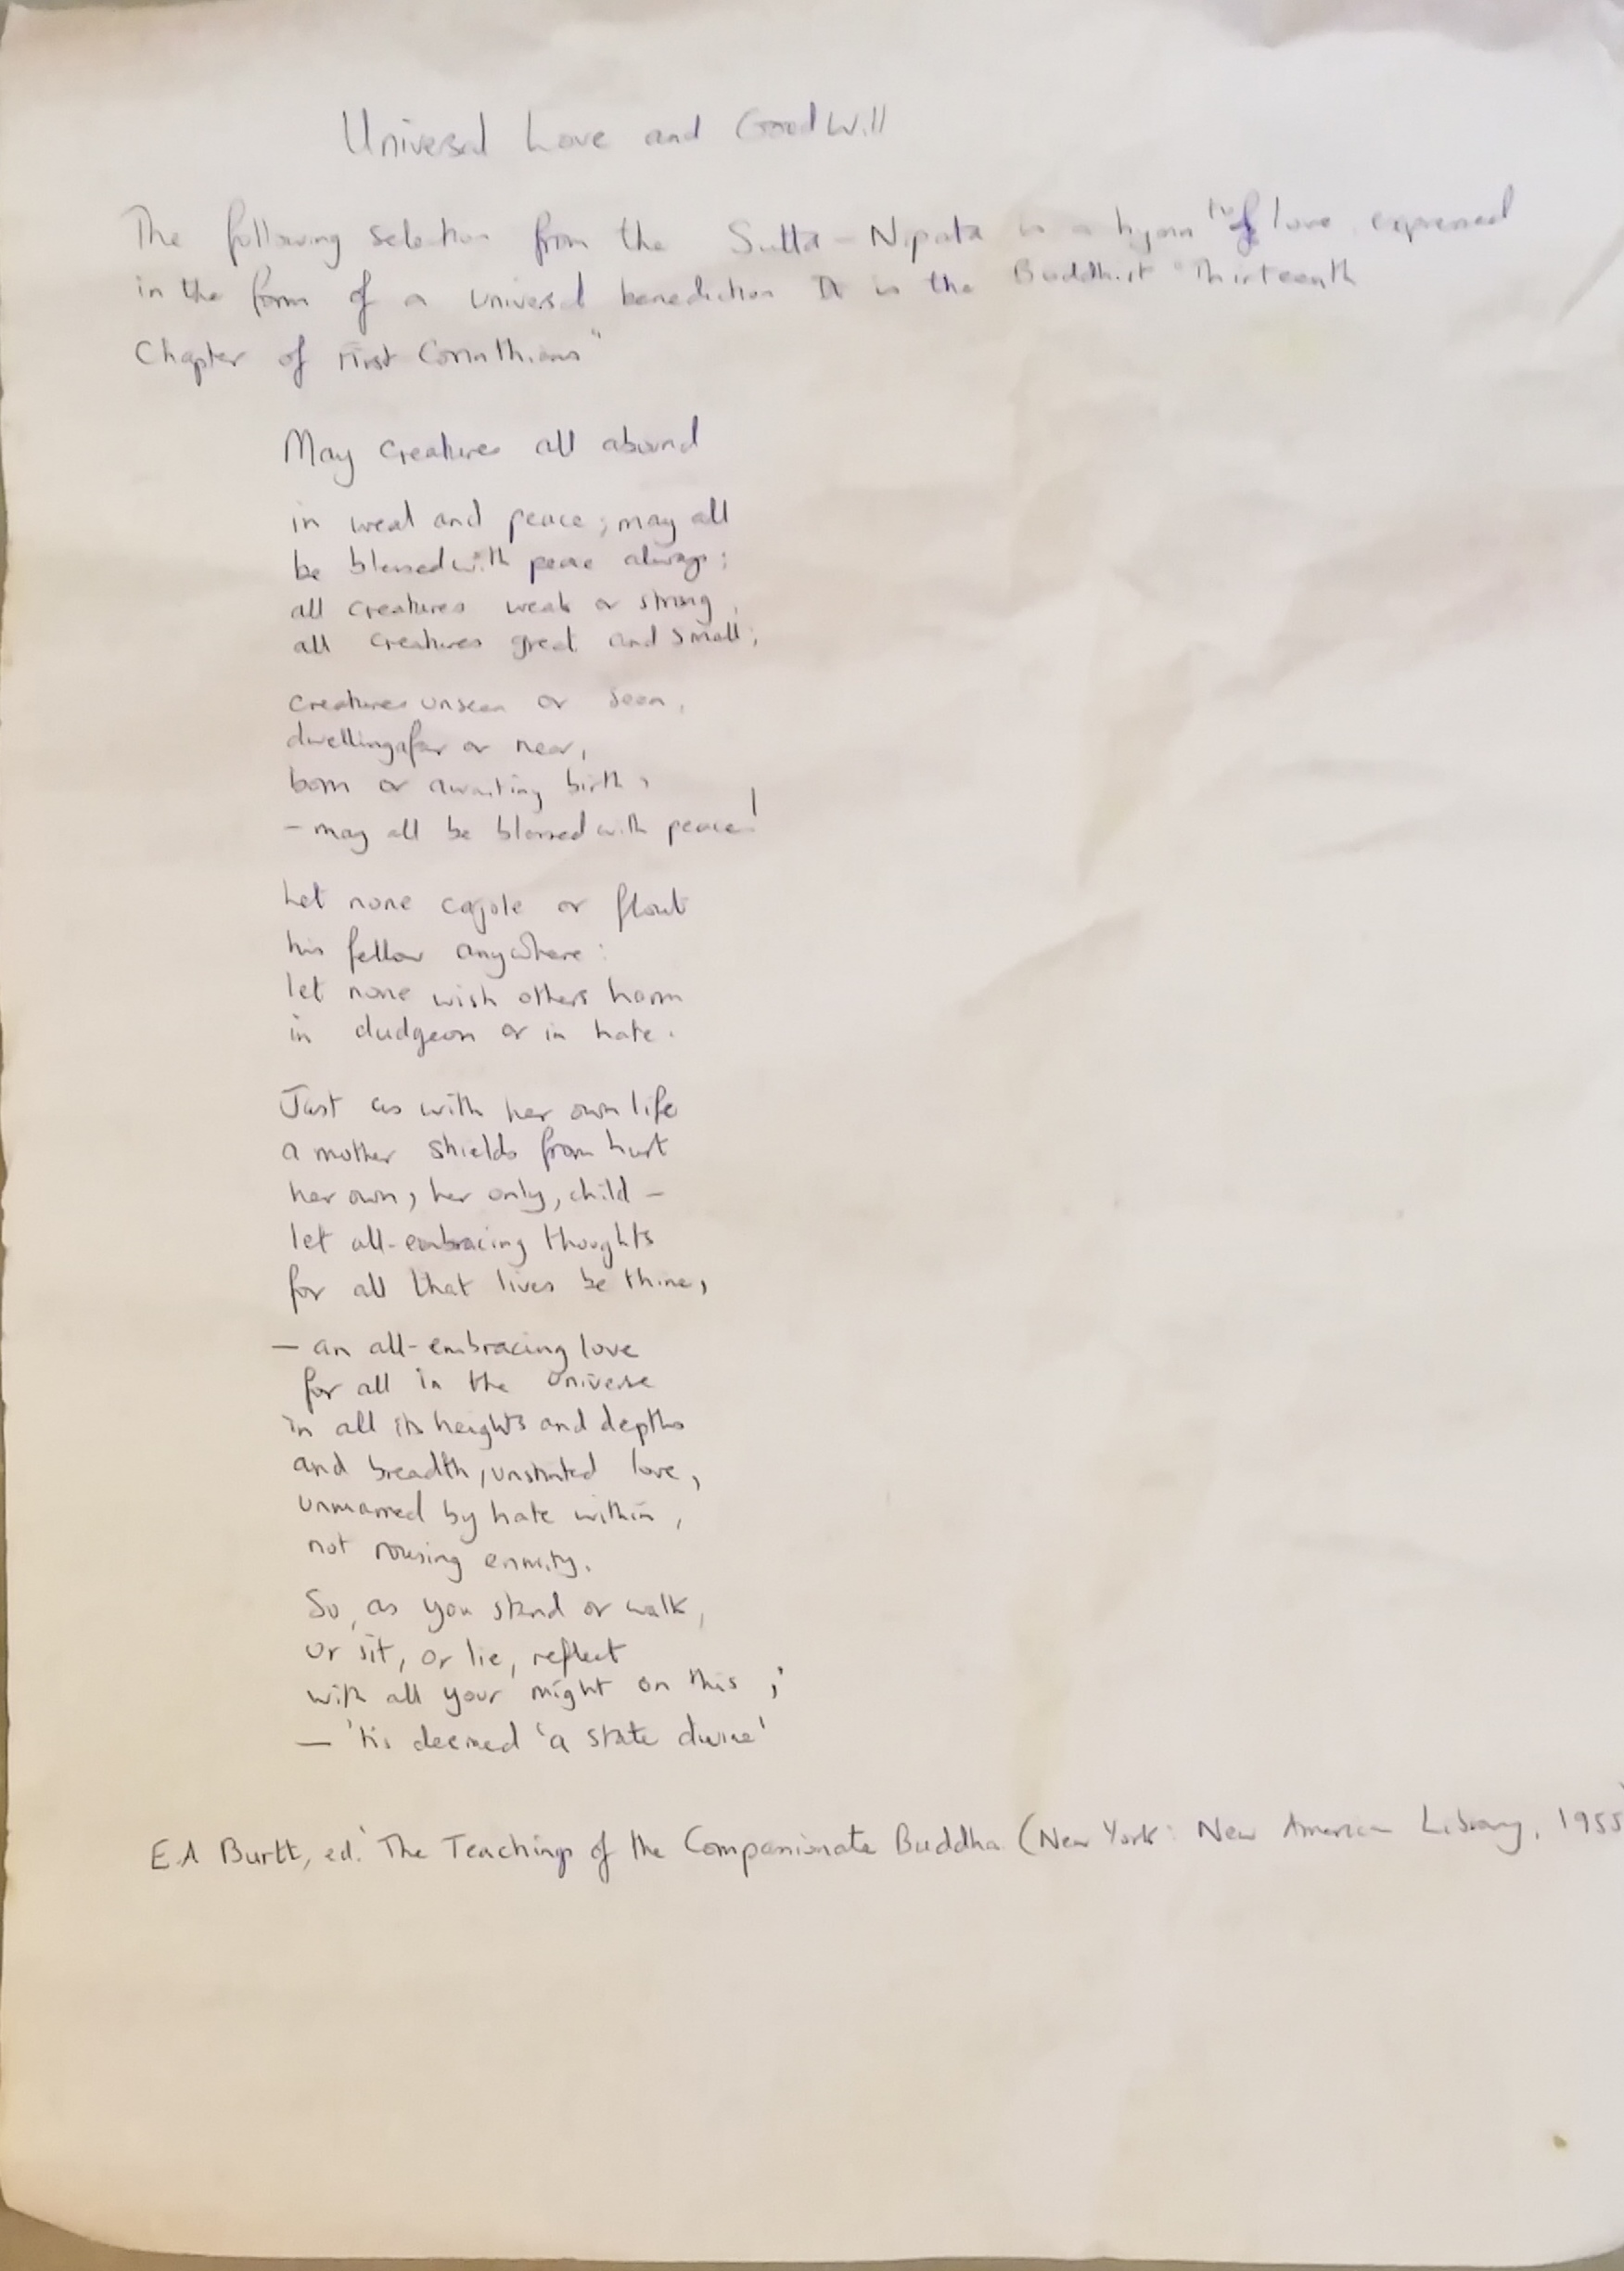 Universal Love and GoodWill
The following selection from the Sutta-Nipata is a hymn of love, expressed
in the form of a universal benediction It is the Buddhist "Thirteenth
Chapter of First Corinthians"
May creatures all abound
in weal and peace; may all
be blessed with peace always;
all creatures weak or strong,
all creatures great and small;
creatures unseen or seen,
dwelling afar or near,
born or awaiting birth,
- may all be blessed with peace!
Let none cajole or flout
his fellow anywhere:
let none wish others harm
in dudgeon or in hate.
Just as with her own life
a mother shields from hurt
her own, her only, child -
let all-embracing thoughts
for all that lives be thine,
- an all-embracing love
for all in the universe
in all its heights and depths
and breadth, unstinted love,
unmarred by hate within,
not rousing enmity.
So, as you stand or walk,
or sit, or lie, reflect
with all your might on this;
- 'tis deemed 'a state divine'
E.A Burtt, ed. The Teachings of the Compassionate Buddha (New York: New American Library, 1955